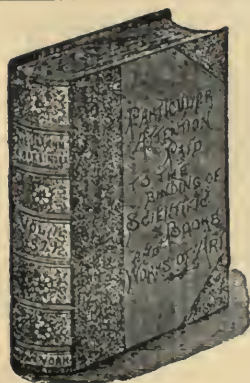 PARTICULAR
ATTENTION
PAID
TO THE
BINDING OF
SCIENTIFIC
BOOKS
AND
WORKS OF ART
YORK